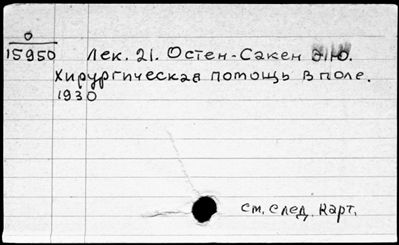 0
15950 Лек. 21. Остен-Сакен Э.Ю.
Хирургическая помощь в поле.
1930
см. след. карт.